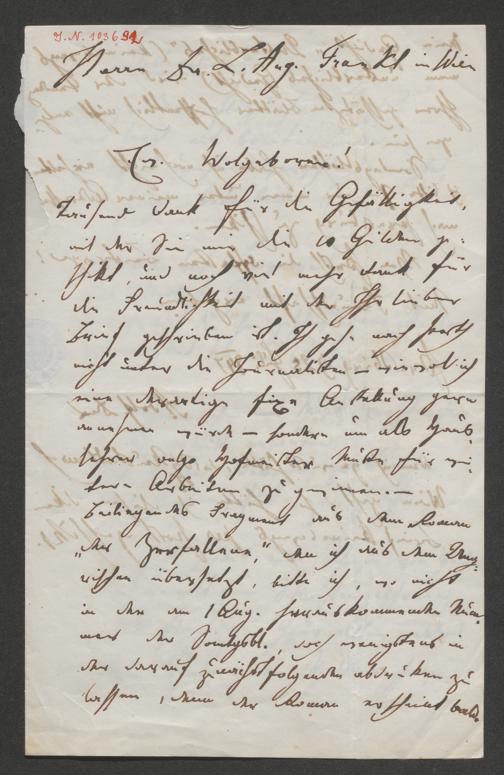 J. N. 103692
Herrn Dr. L. Aug. Frankl in Wien
Ew. Wolgeboren!
Tausend Dank für die Gefälligkeit,
mit der Sie mir die 10 Gulden ge-
schikt, und noch viel mehr Dank für
die Freundlichkeit mit der Ihr lieber
Brief geschrieben ist. Ich gehe nach
nicht unter die Journalisten – wiewol ich
eine derartige fixe Anstellung gern
annehmen würde – sondern um als Haus-
lehrer oder Hofmeister Muße für wei-
tere Arbeiten zu gewinnen. –
Beiliegendes Fragment aus dem Roman
"der Zerfallene", den ich aus dem Unga-
rischen übersetzt, bitte ich, wo nicht
in der am 1 Aug. herauskommenden Num-
mer der Sontgsbl., doch wenigstens in
der darauf zunächstfolgenden abdruken zu
lassen, denn der Roman erscheint bald